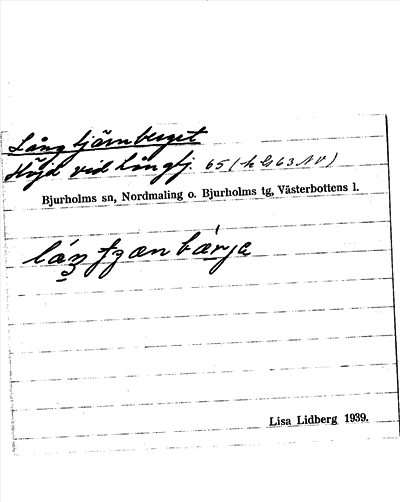 Lång tjärnberget
Höjd vid Långtj. 65 (h Gs 63 NV)
Bjurholms sn, Nordmaling o. Bjurholms tg, Västerbottens l.
Lisa Lidberg 1939.